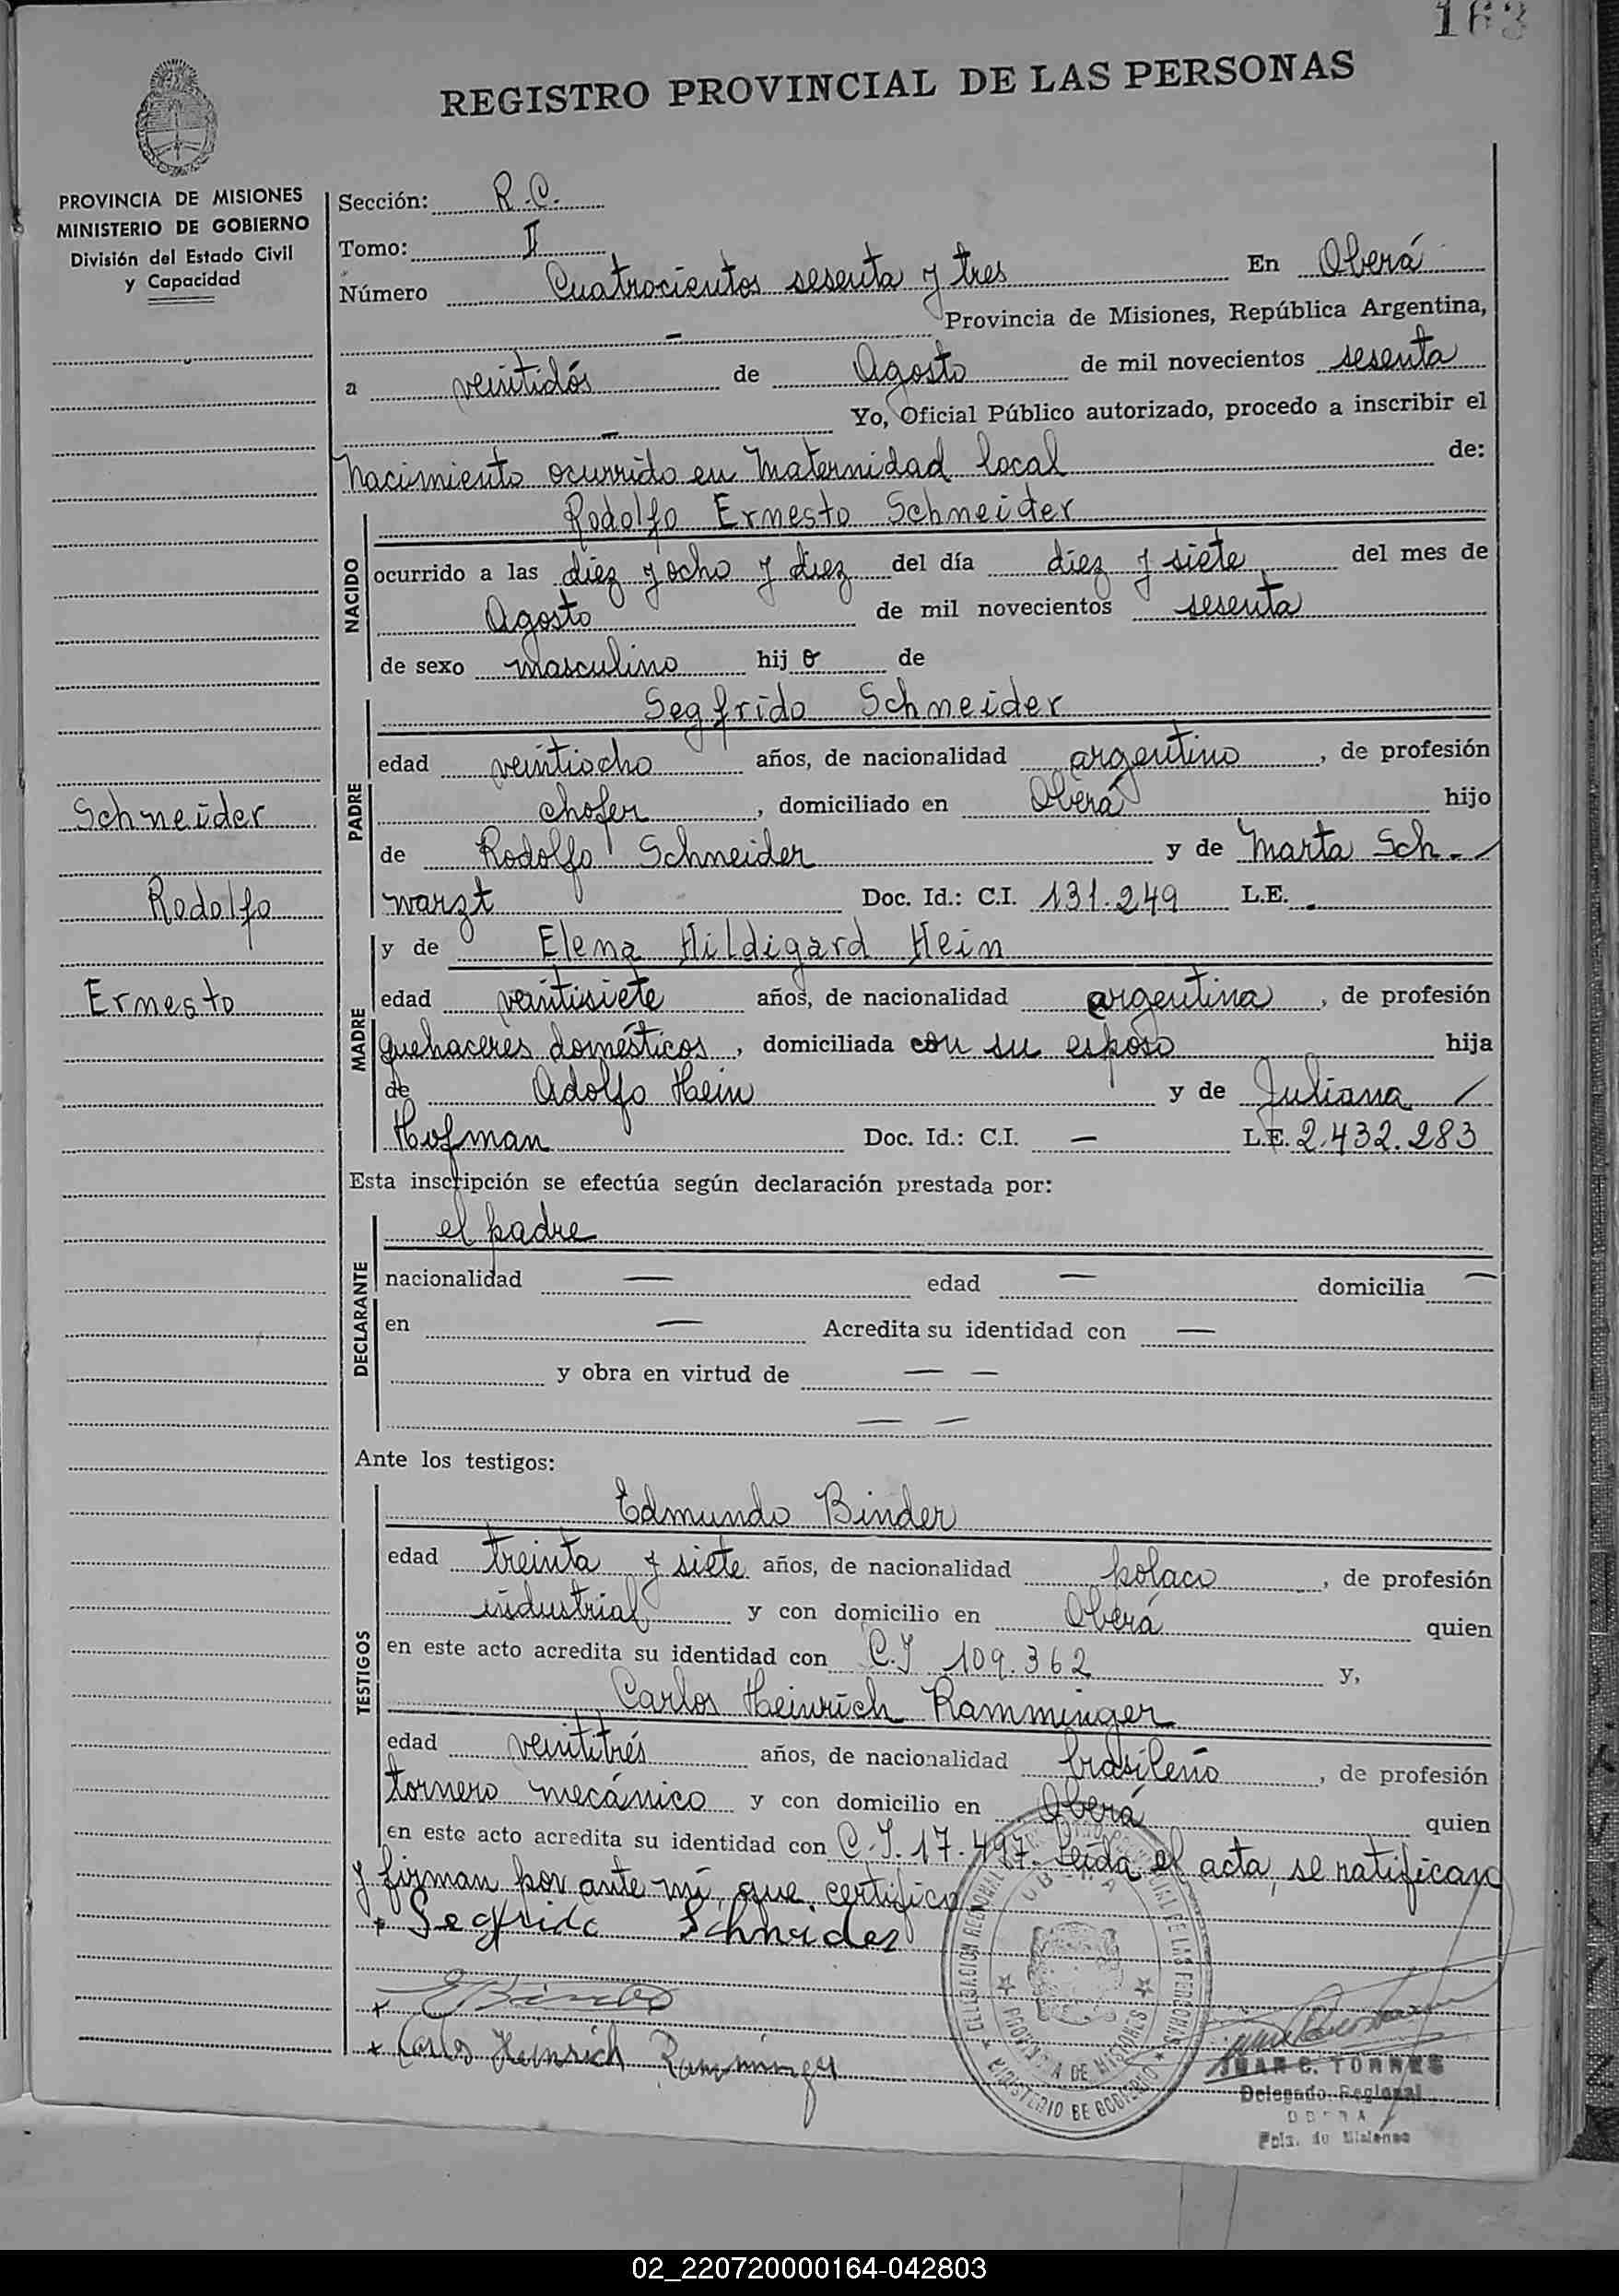 163
REGISTRO PROVINCIAL DE LAS PERSONAS
PROVINCIA DE MISIONES
MINISTERIO DE GOBIERNO
División del Estado Civil
y Capacidad
Sección: R.C.
Tomo: II
Número Cuatrocientos sesenta y tres En Oberá
— Provincia de Misiones, República Argentina,
a veintidós de Agosto de mil novecientos sesenta
— Yo, Oficial Público autorizado, procedo a inscribir el
nacimiento ocurrido en Maternidad local de:
NACIDO
Rodolfo Ernesto Schneider
ocurrido a las diez y ocho y diez del día diez y siete del mes de
Agosto de mil novecientos sesenta
de sexo masculino hijo de
PADRE
Segfrido Schneider
edad veintiocho años, de nacionalidad argentino, de profesión
chofer, domiciliado en Oberá hijo
de Rodolfo Schneider y de Marta Sch-
warzt Doc. Id.: C.I. 131.249 L.E. .
MADRE
y de Elena Hildigard Hein
edad veintisiete años, de nacionalidad argentina, de profesión
quehaceres domésticos, domiciliada con su esposo hija
de Adolfo Hein y de Juliana /
Hofman Doc. Id.: C.I. — L.E. 2.432.283
Schneider
Rodolfo
Ernesto
Esta inscripción se efectúa según declaración prestada por:
DECLARANTE
el padre
nacionalidad — edad — domicilia —
en — Acredita su identidad con —
y obra en virtud de — —
— —
Ante los testigos:
TESTIGOS
Edmundo Binder
edad treinta y siete años, de nacionalidad polaco, de profesión
industrial y con domicilio en Oberá quien
en este acto acredita su identidad con C.I 109.362 y,
Carlos Heinrich Ramminger
edad veintitrés años, de nacionalidad brasileño, de profesión
tornero mecánico y con domicilio en Oberá quien
en este acto acredita su identidad con C.I. 17.497. Leída el acta, se ratifican
y firman por ante mí, que certifico
+ Segfrido Schneider
+ E Binder
+ Carlos Heinrich Ramminger
DELEGACION REGIONAL
OBERA
PROVINCIAL DE LAS PERSONAS
PROVINCIA DE MISIONES
MINISTERIO DE GOBIERNO
JUAN C. TORRES
Delegado Regional
OBERA
Pcia. de Misiones
02_220720000164-042803